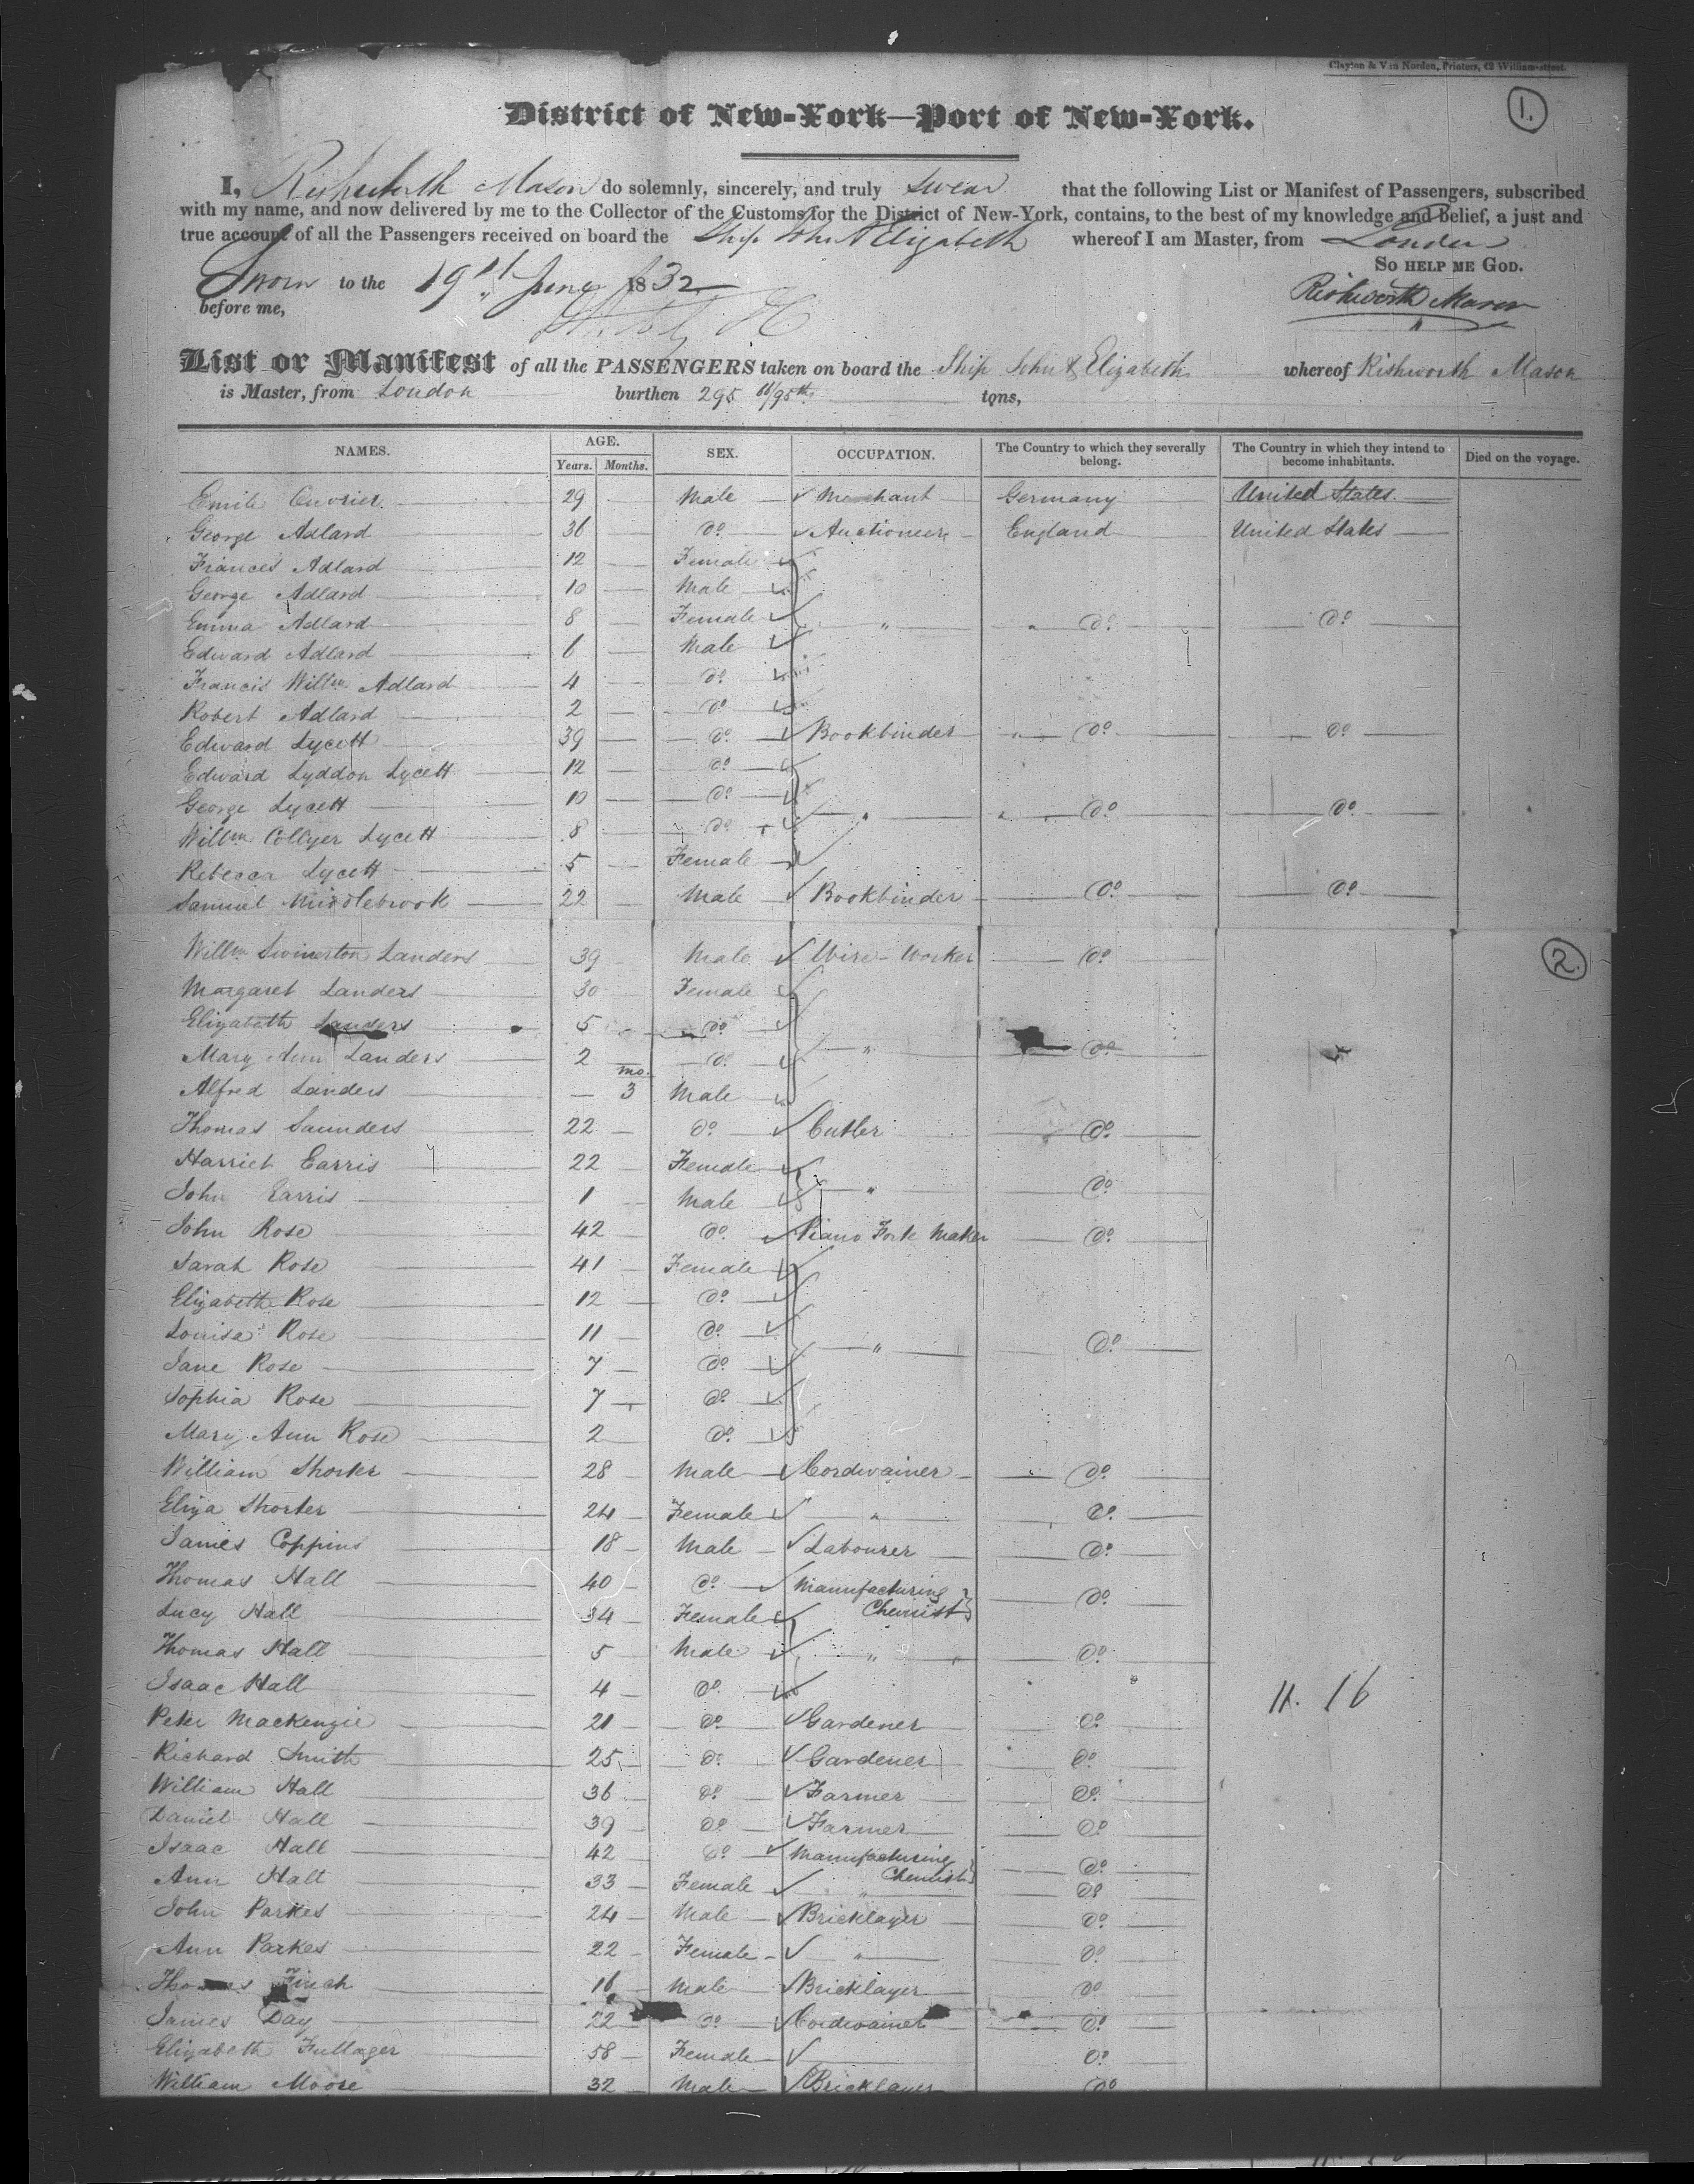 Clayton & Van Norden, Printers, 42 William-street.
1.
District of New-York—Port of New-York.
I, Rishworth Mason do solemnly, sincerely, and truly swear that the following List or Manifest of Passengers, subscribed
with my name, and now delivered by me to the Collector of the Customs for the District of New-York, contains, to the best of my knowledge and belief, a just and
true account of all the Passengers received on board the Ship John & Elizabeth whereof I am Master, from London
SO HELP ME GOD.
Sworn to the 19th June 1832
before me,
Rishworth Mason
List or Manifest of all the PASSENGERS taken on board the Ship John & Elizabeth whereof Rishworth Mason
is Master, from London burthen 295 /95th tons,
NAMES. AGE. SEX. OCCUPATION. The Country to which they severally belong. The Country in which they intend to become inhabitants. Died on the voyage.
Years. Months.
Emile Cuvrier 29 Male Merchant Germany United States
George Adlard 36 do Auctioneer England United States
Frances Adlard 12 Female
George Adlard 10 Male
Emma Adlard 8 Female " do do
Edward Adlard 6 Male
Francis Willm Adlard 4 do
Robert Adlard 2 do
Edward Lycett 39 do Bookbinder do do
Edward Lyddon Lycett 12 do
George Lycett 10 do
Willm Collyer Lycett 8 do " do do
Rebecca Lycett 5 Female
Samuel Middlebrook 22 Male Bookbinder do do
2.
Willm Swinerton Landers 39 Male Wire-Worker do
Margaret Landers 30 Female
Elizabeth Landers 5 do
Mary Ann Landers 2 do " do
Alfred Landers — mo. 3 Male
Thomas Saunders 22 do Cutler do
Harriet Earris 22 Female
John Earris 1 Male " do
John Rose 42 do Piano Forte Maker do
Sarah Rose 41 Female
Elizabeth Rose 12 do
Louisa Rose 11 do
Jane Rose 7 do " do
Sophia Rose 7 do
Mary Ann Rose 2 do
William Shorter 28 Male Cordwainer do
Eliza Shorter 24 Female " do
James Coppins 18 Male Labourer do
Thomas Hall 40 do Manufacturing Chemist do
Lucy Hall 34 Female
Thomas Hall 5 Male " " do
Isaac Hall 4 do
11. 16
Peter Mackenzie 21 do Gardener do
Richard Smith 25 do Gardener do
William Hall 36 do Farmer do
Daniel Hall 39 do Farmer do
Isaac Hall 42 do Manufacturing Chemist do
Ann Hall 33 Female " do
John Parkes 24 Male Bricklayer do
Ann Parkes 22 Female " do
Thomas Finch 16 Male Bricklayer do
James Day 22 do Cordwainer do
Elizabeth Fullager 58 Female do
William Moore 32 Male Bricklayer do